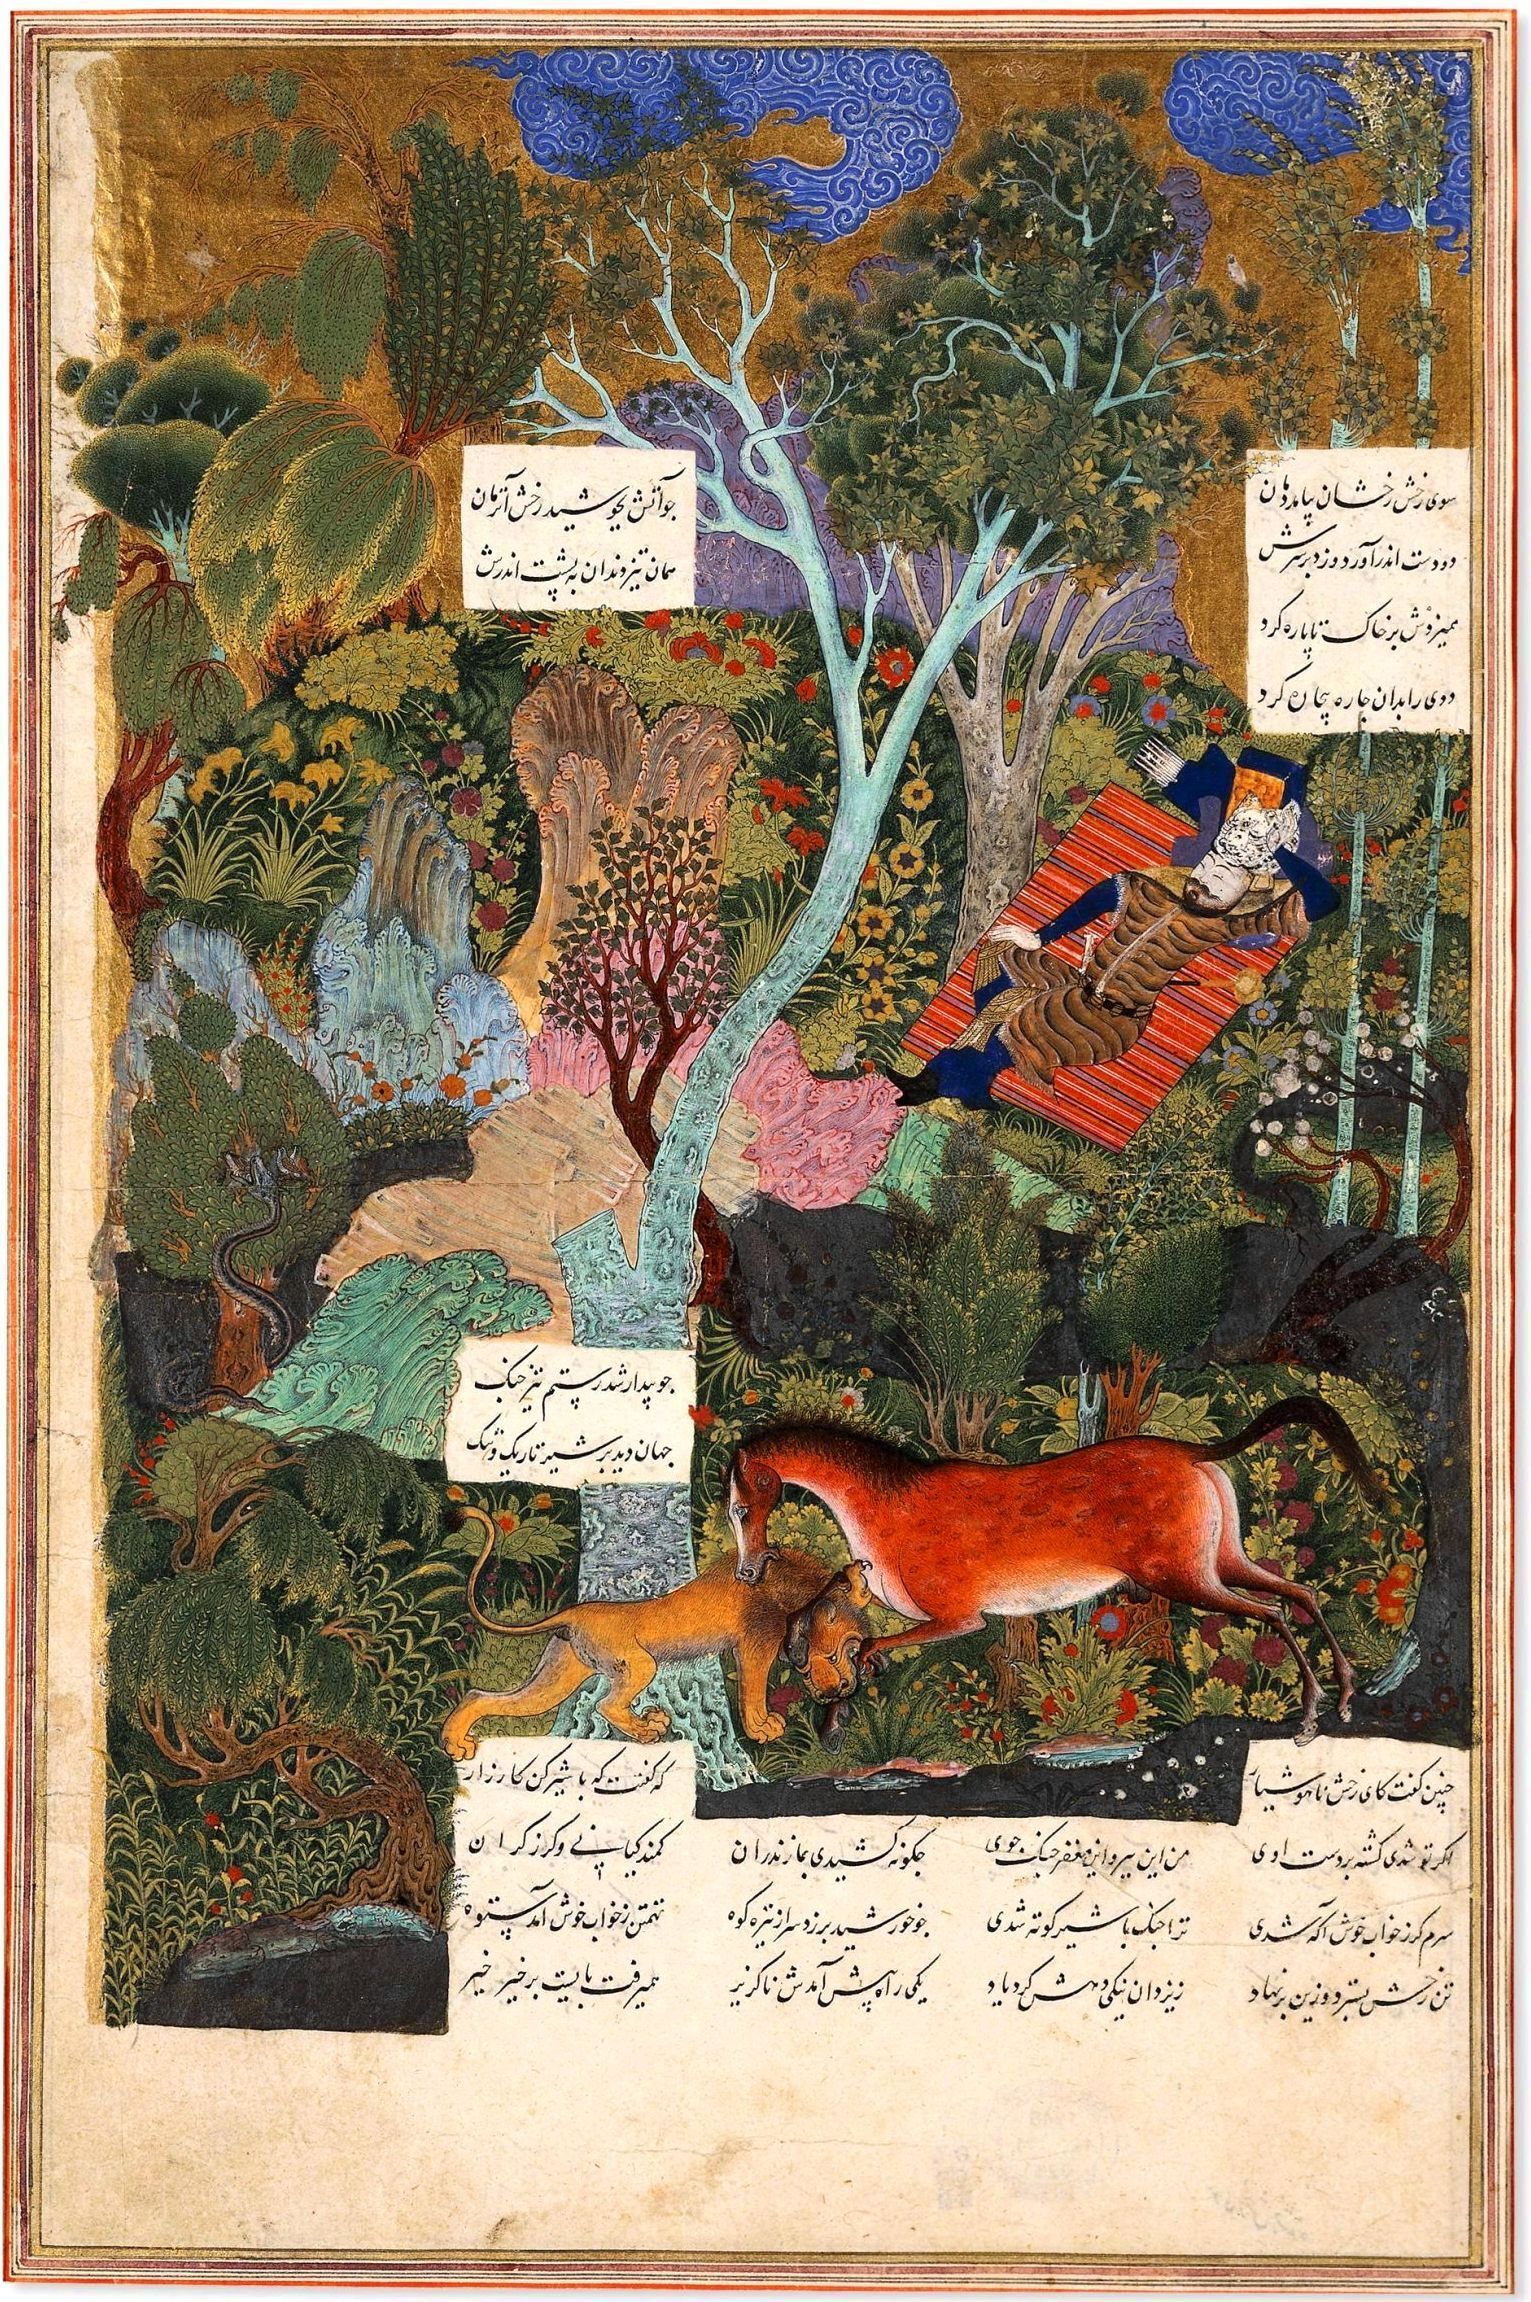 سوی رخش رخشان بیامد دمان چو آتش بجوشید رخش آنزمان
دو دست اندر آورد و زد بر سرش همان تیز دندان به پشت اندرش
همیزدش بر خاک تا پاره کرد
ددی را بدان چاره بیچاره کرد
چو بیدار شد رستم تیز چنگ
جهان دید بر شیر تاریک و تنگ
چنین گفت کای رخش ناهوشیار که گفتت که با شیر کن کارزار
اگر تو شدی کشته بر دست اوی من این ببر و این مغفر جنگ جوی چگونه کشیدی بمازندران کمند کیانی و گرز گران
سرم گر ز خواب خوش آگه شدی ترا جنگ با شیر کوته شدی چو خورشید برزد سر از تیره کوه تهمتن ز خواب خوش آمد ستوه
تن رخش بسترد و زین برنهاد ز یزدان نیکی دهش کرد یاد یکی راه پیش آمدش ناگزیر همیرفت بایست بر خیر خیر